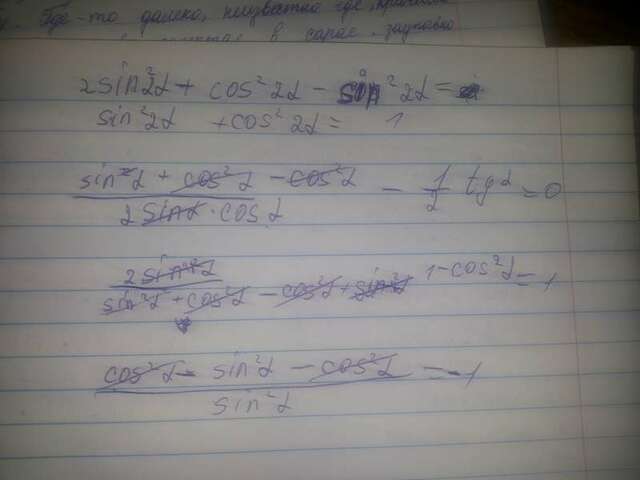 Где-то далеко, неизвестно где,
в сарае
2sin²2α + cos²2α - sin²2α =
sin²2α + cos²2α = 1
(sin²α + cos²α - cos²α) / (2sinα · cosα) - 1/2 tgα = 0
2sin²α / (sin²α + cos²α - cos²α + sin²α) 1 - cos²α = 1
(cos²α - sin²α - cos²α) / sin²α = -1